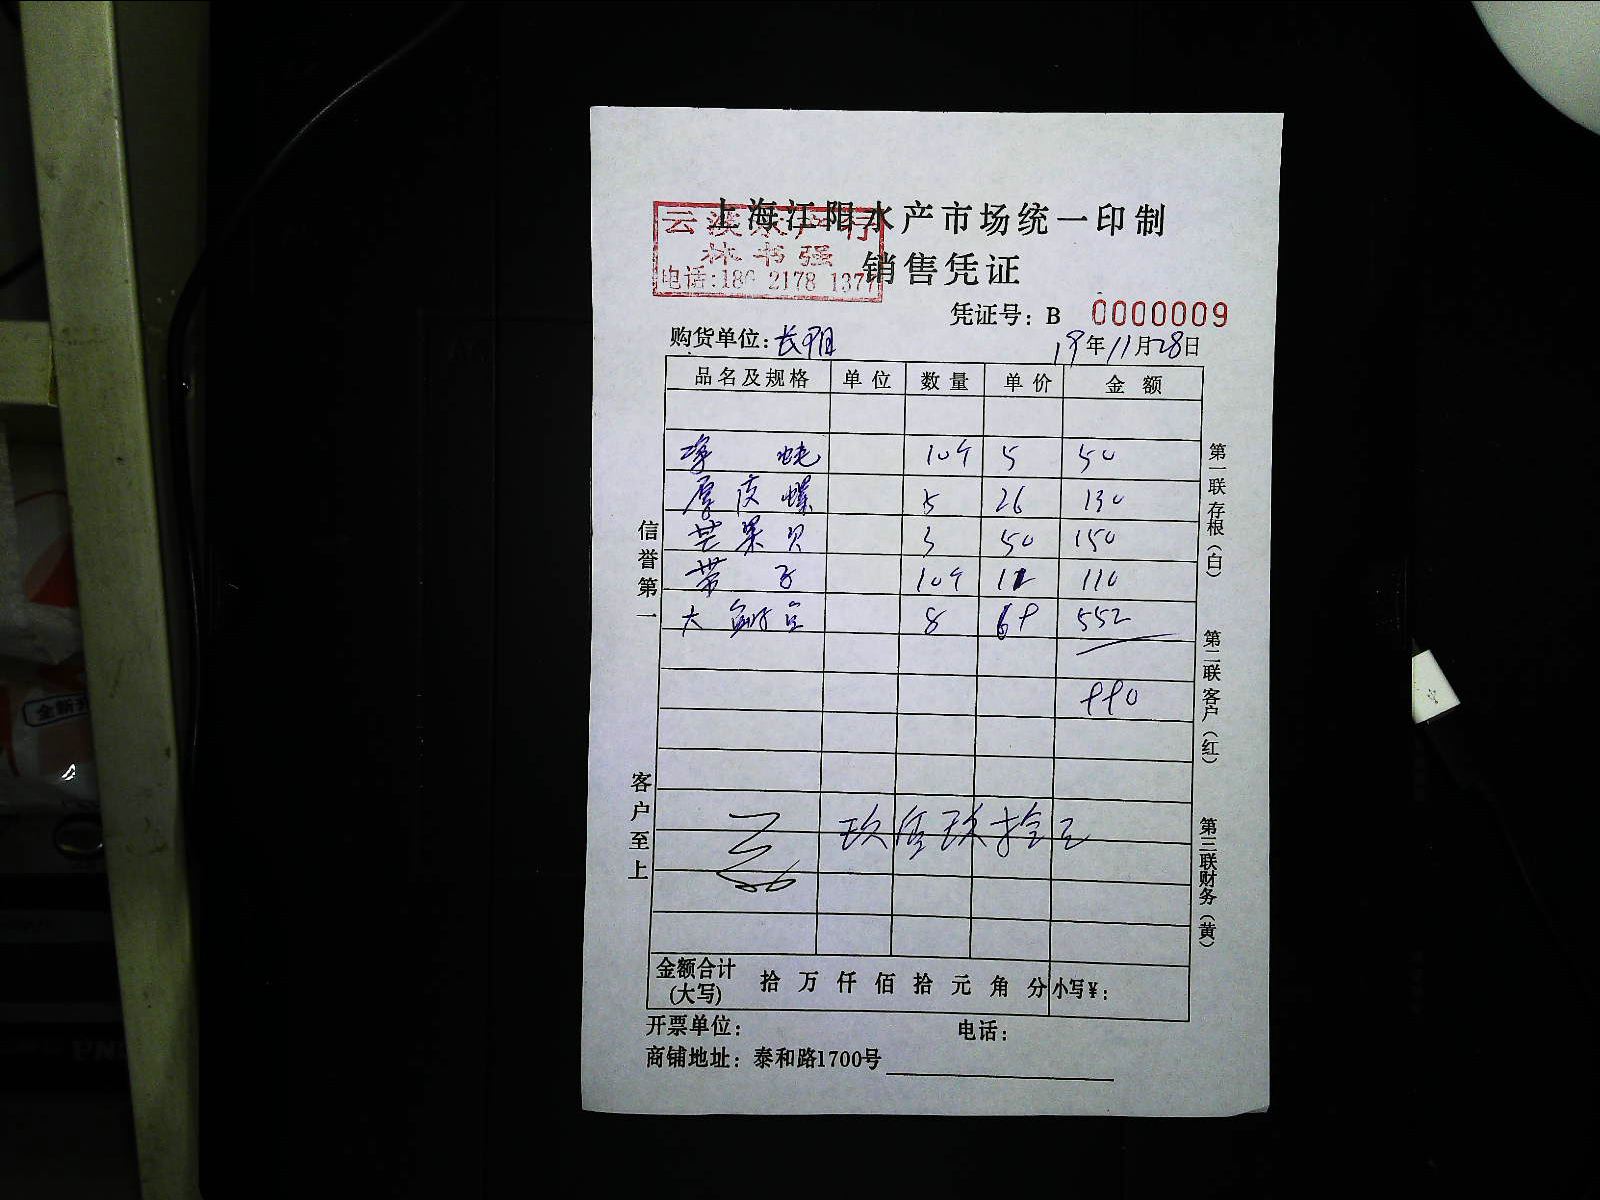 上海江阳水产市场统一印制
云溪水产行
林书强
销售凭证
凭证号：B 0000009
购货单位：长阳 19年11月28日
品名及规格 单位 数量 单价 金额
净 蛏 10个 5 50
厚皮螺 5 26 130
芒果贝 3 50 150
带子 10个 11 110
大 8 69 552
990
玖佰玖拾元
金额合计(大写) 拾 万 仟 佰 拾 元 角 分 小写¥：
开票单位： 电话：
商铺地址：泰和路1700号
信誉第一
客户至上
第一联存根（白）
第二联客户（红）
第三联财务（黄）